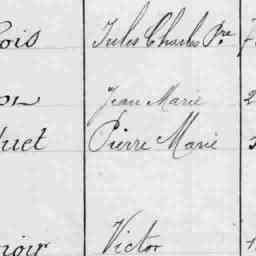 ois Jules Charles Pre
on Jean Marie 2
huet Pierre Marie
noir Victor